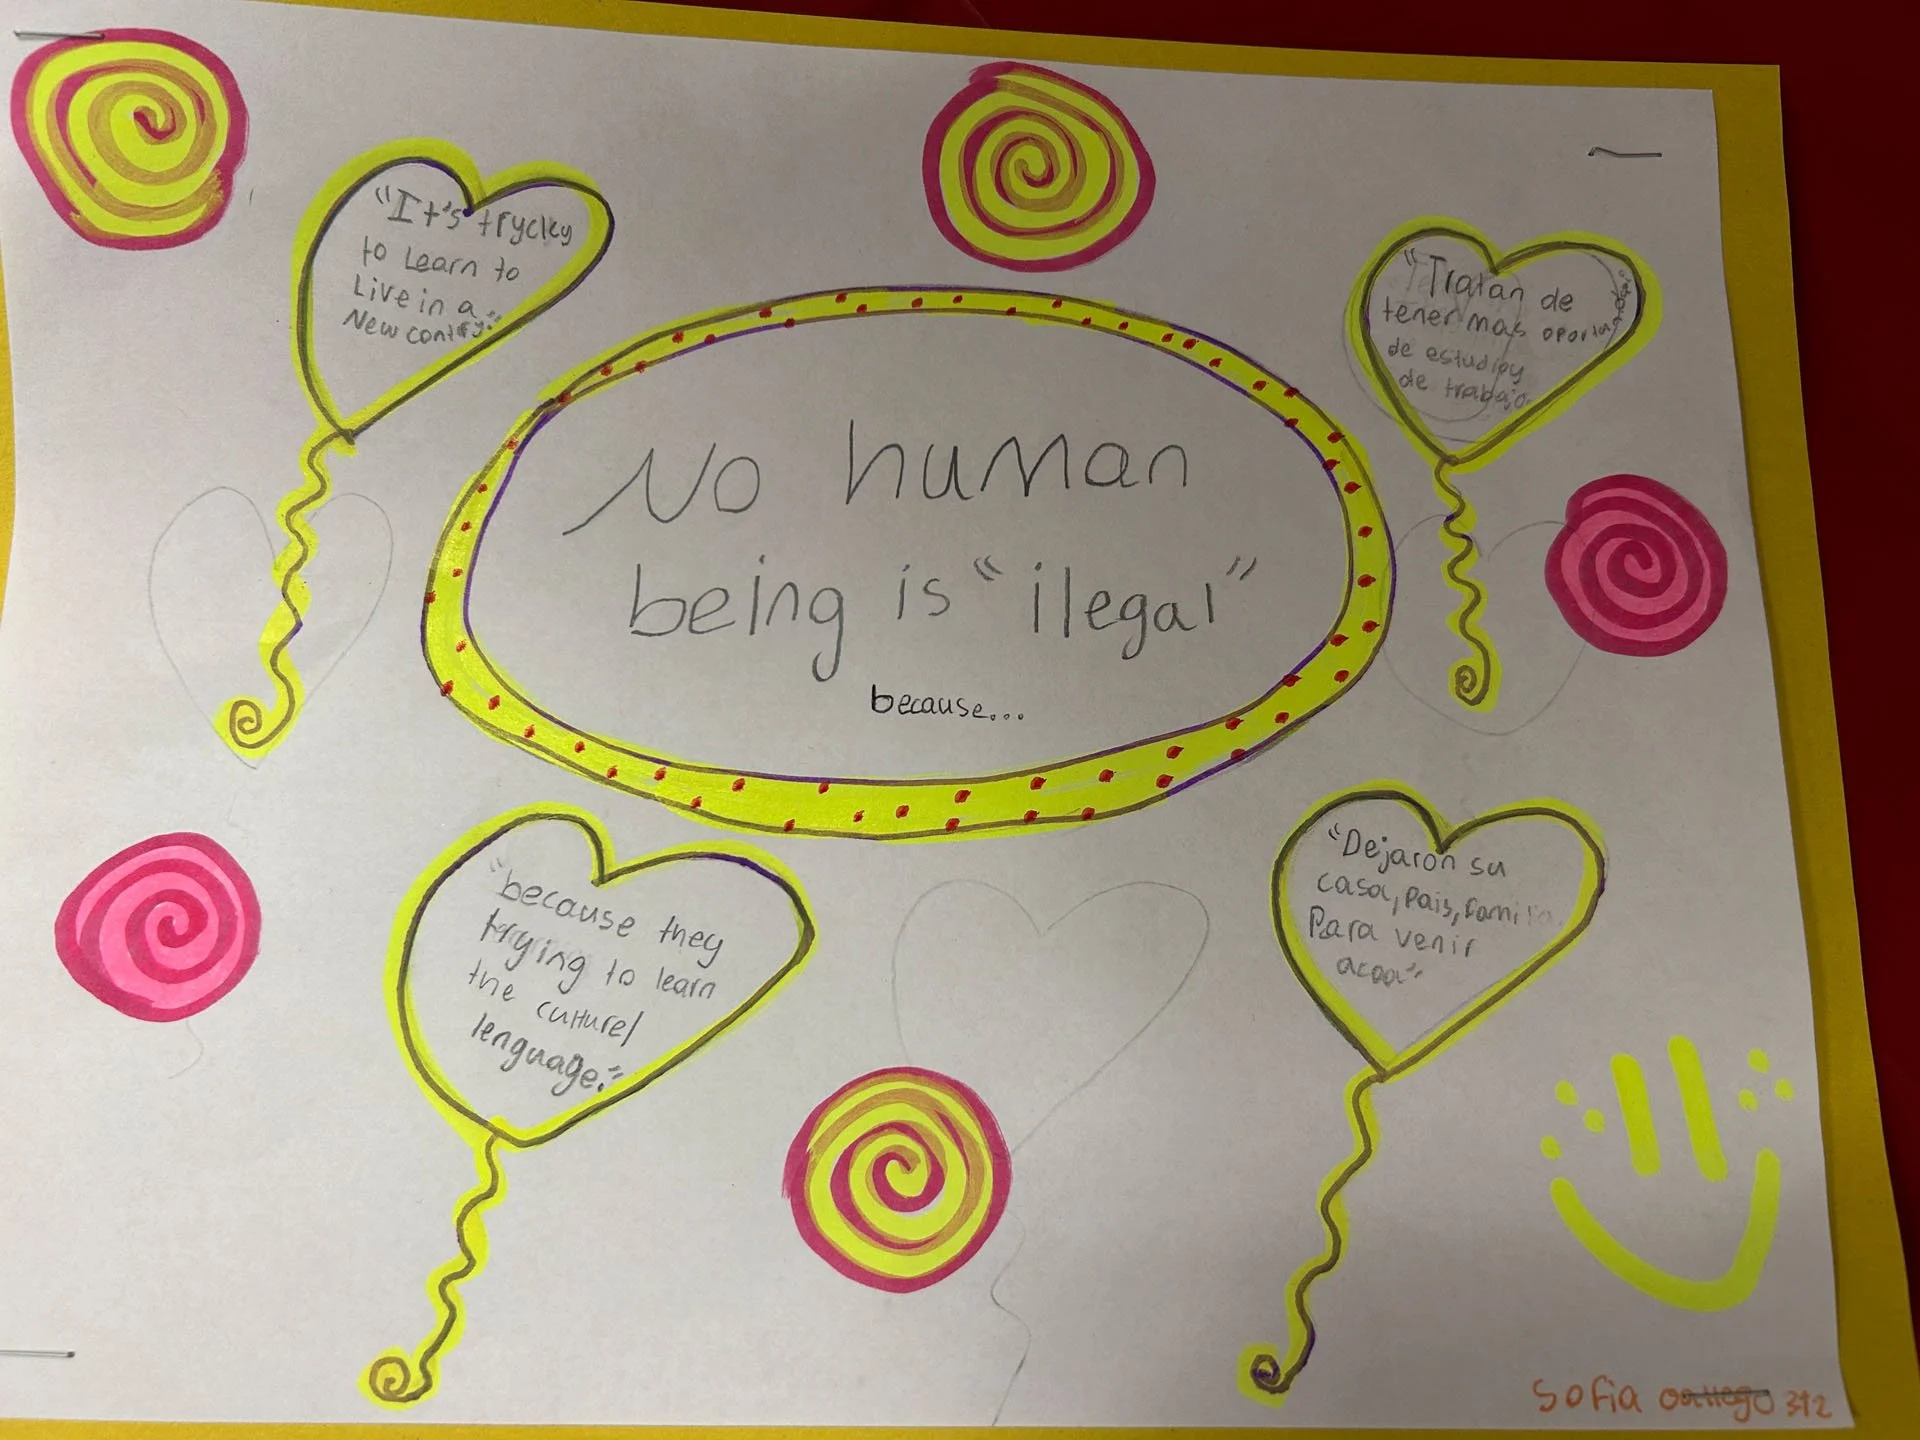 "It's trycky
to Learn to
Live in a
New contry."
"Tratan de
tener mas
de estudios y
de trabajo.
No human
being is "ilegal"
because...
"because they
trying to learn
the culture/
lenguage."
"Dejaron su
casa, pais, familia
Para venir
acaa"
Sofia 312